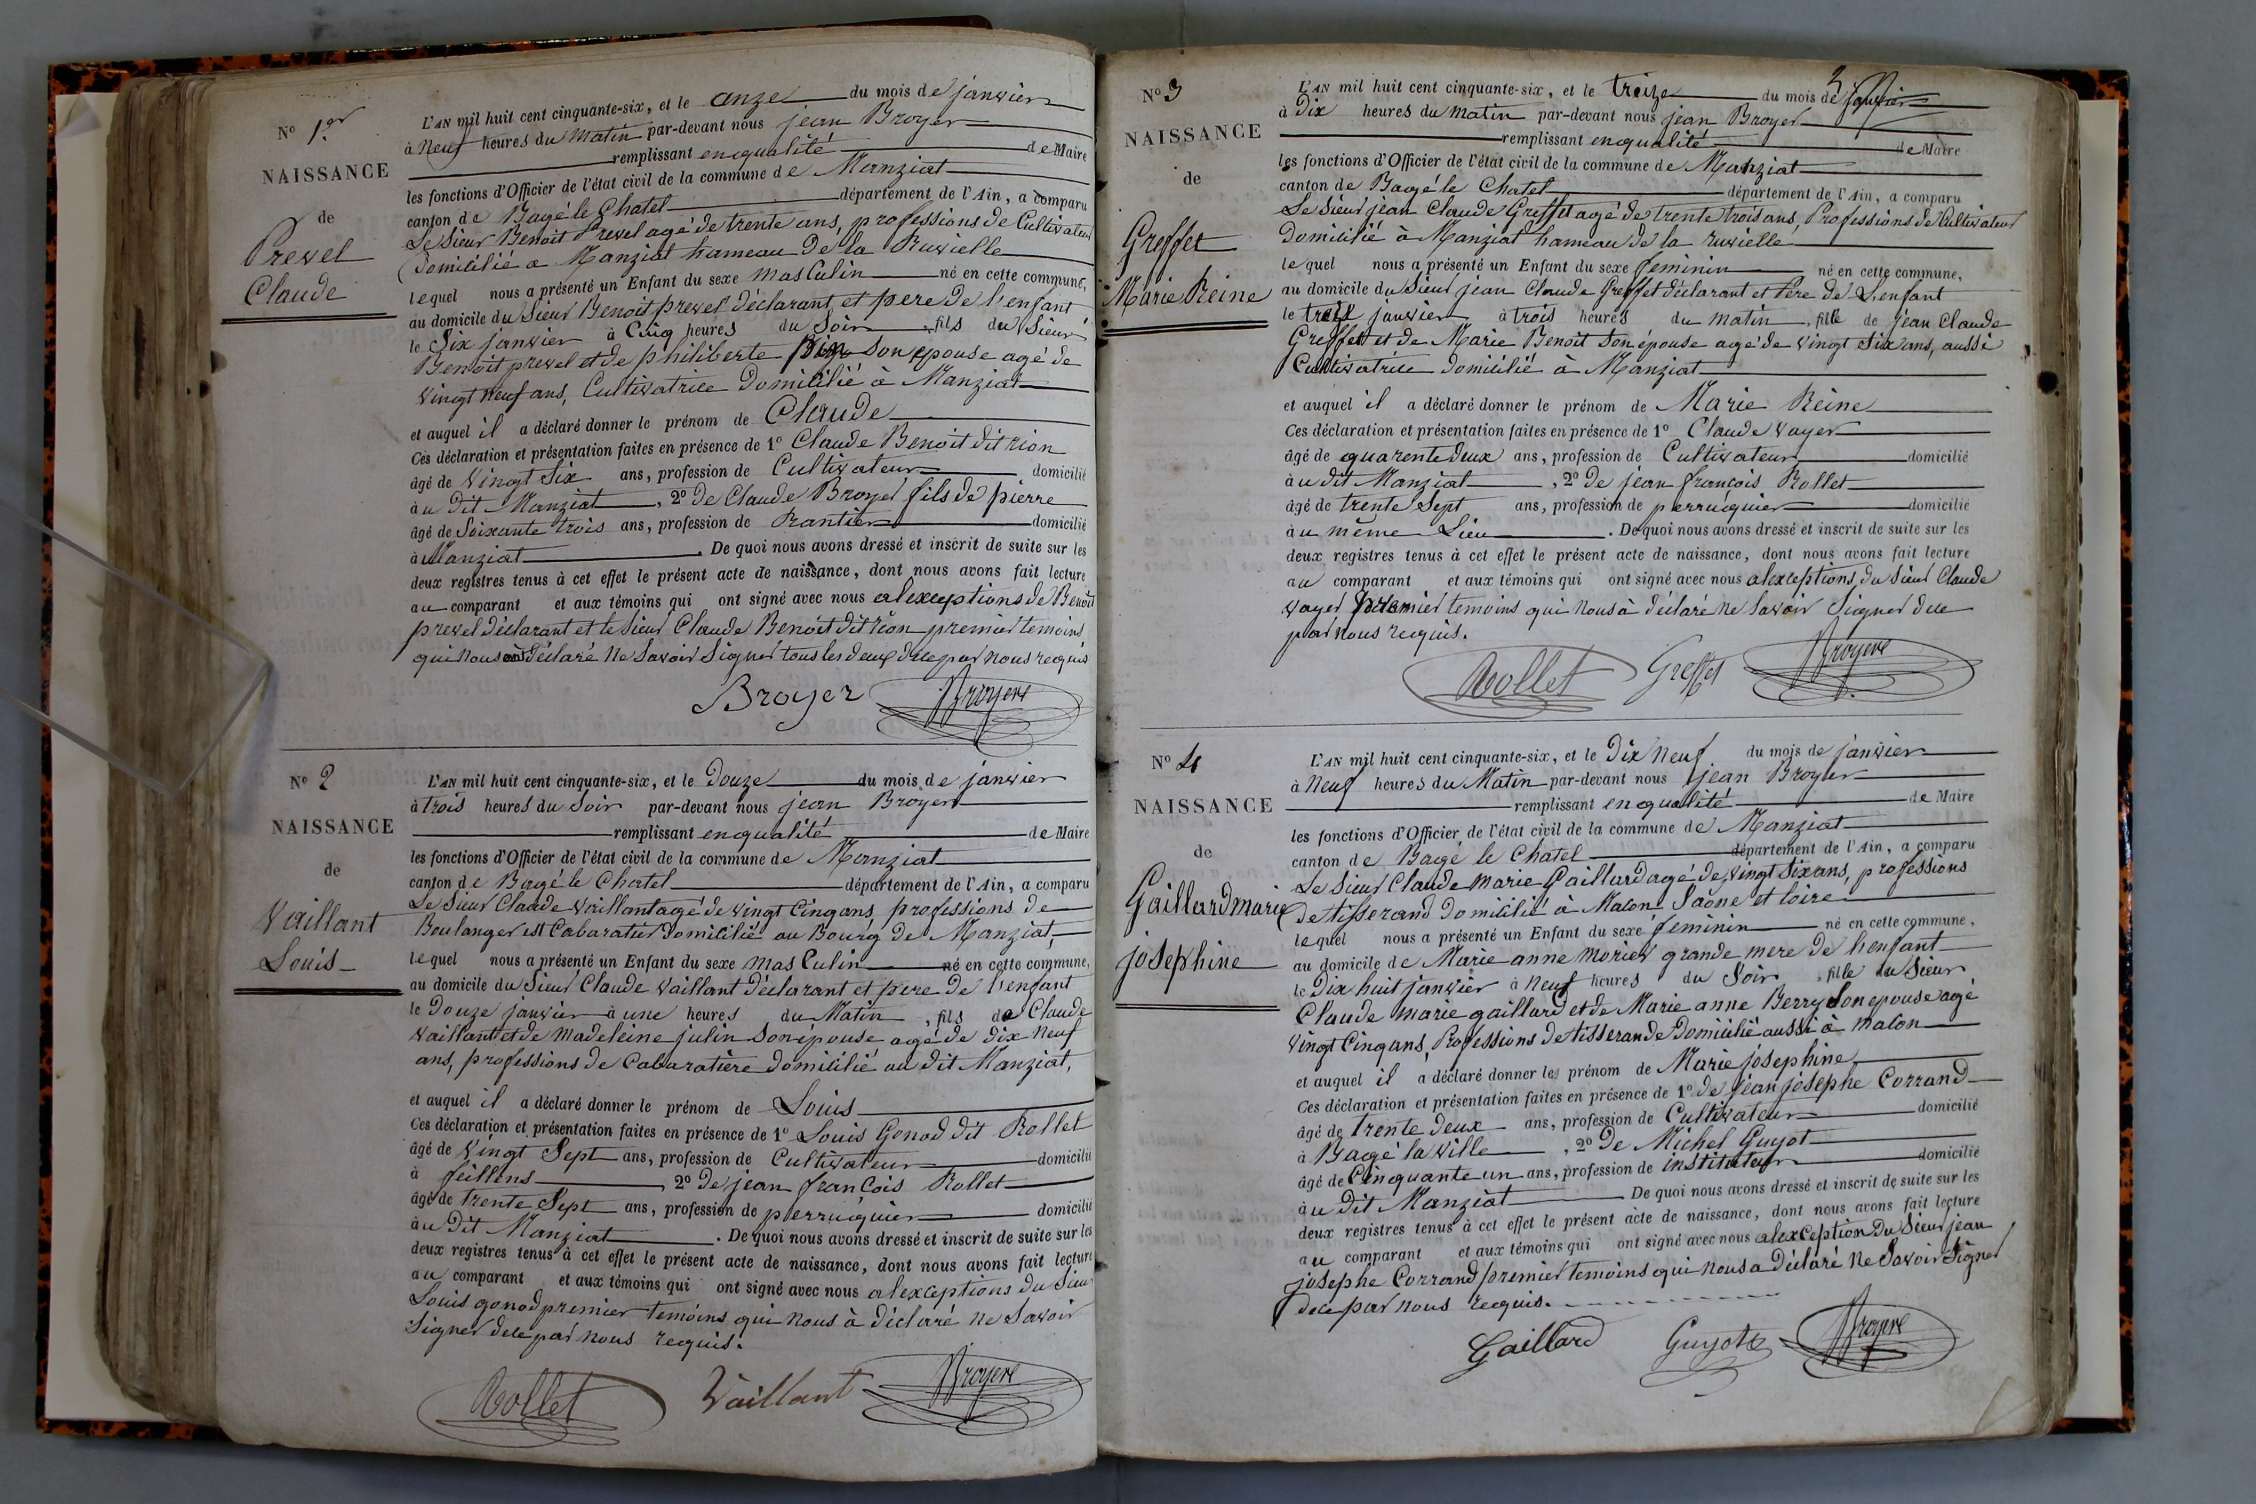 N° 1er
NAISSANCE
de
Prevel
Claude
L'AN mil huit cent cinquante-six, et le onze du mois de janvier
à Neuf heures du Matin par-devant nous jean Broyer
remplissant enqualité de Maire
les fonctions d'Officier de l'état civil de la commune de Manziat
canton de Bagé le Chatel département de l'Ain, a comparu
Le Sieur Benoit Prevel agé de trente ans, professions de Cultivateur
Domicilié a Manziat hameau De la Ruvielle
lequel nous a présenté un Enfant du sexe masculin né en cette commune,
au domicile du Sieur Benoit prevel déclarant et pere De l'enfant
le Six janvier à Cinq heures du Soir, fils du Sieur
Benoit prevel et de philiberte son epouse agé de
vingt neuf ans, Cultivatrice Domicilié à Manziat
et auquel il a déclaré donner le prénom de Claude
Ces déclaration et présentation faites en présence de 1° Claude Benoit dit rion
âgé de vingt Six ans, profession de Cultivateur domicilié
àu dit Manziat, 2° de Claude Broyer fils de pierre
âgé de Soixante trois ans, profession de Rantier domicilié
à Manziat. De quoi nous avons dressé et inscrit de suite sur les
deux registres tenus à cet effet le présent acte de naissance, dont nous avons fait lecture
au comparant et aux témoins qui ont signé avec nous alexceptions de Benoit
prevel déclarant et le Sieur Claude Benoit dit rion premier temoins
qui nous ont déclaré ne Savoir Signer tous les deux dece par nous requis
Broyer Broyer
N° 2
NAISSANCE
de
Vaillant
Louis
L'AN mil huit cent cinquante-six, et le Douze du mois de janvier
à trois heures du Soir par-devant nous jean Broyer
remplissant enqualité de Maire
les fonctions d'Officier de l'état civil de la commune de Manziat
canton de Bagé le Chatel département de l'Ain, a comparu
Le Sieur Claude Vaillant agé de vingt Cinq ans, professions de
Boulanger est Cabaratier Domicilié au Bourg de Manziat,
lequel nous a présenté un Enfant du sexe masculin né en cette commune,
au domicile du Sieur Claude Vaillant déclarant et pere de l'enfant
le Douze janvier à une heures du Matin, fils de Claude
Vaillant et de Madeleine julin Son épouse agé de dix neuf
ans, professions de Cabaratière domicilié au dit Manziat,
et auquel il a déclaré donner le prénom de Louis
Ces déclaration et présentation faites en présence de 1° Louis Gonod dit Rollet
âgé de vingt Sept ans, profession de Cultivateur domicilié
à feillens, 2° de jean francois Rollet
âgé de trente Sept ans, profession de perruquier domicilié
àu Dit Manziat. De quoi nous avons dressé et inscrit de suite sur les
deux registres tenus à cet effet le présent acte de naissance, dont nous avons fait lecture
au comparant et aux témoins qui ont signé avec nous alexceptions du Sieur
Louis gonod premier temoins qui nous à déclaré ne Savoir
Signer dece par nous requis.
Rollet Vaillant Broyer
3
N° 3
NAISSANCE
de
Greffet
Marie Reine
L'AN mil huit cent cinquante-six, et le treize du mois de janvier
à Dix heures du matin par-devant nous jean Broyer
remplissant enqualité de Maire
les fonctions d'Officier de l'état civil de la commune de Manziat
canton de Bagé le Chatel département de l'Ain, a comparu
Le Sieur jean Claude Greffet agé de trente trois ans, Professions de Cultivateur
Domicilié à Manziat hameau de la ruvielle
lequel nous a présenté un Enfant du sexe feminin né en cette commune,
au domicile du Sieur jean Claude Greffet déclarant et Pere de L'enfant
le treize janvier à trois heures du matin, fille de jean Claude
Greffet et de Marie Benoit Son épouse agé de vingt Six ans, aussi
Cultivatrice domicilié à Manziat
et auquel il a déclaré donner le prénom de Marie Reine
Ces déclaration et présentation faites en présence de 1° Claude Vayer
âgé de quarente deux ans, profession de Cultivateur domicilié
àu dit Manziat, 2° de jean francois Rollet
âgé de trente Sept ans, profession de perruquier domicilié
àu même Lieu. De quoi nous avons dressé et inscrit de suite sur les
deux registres tenus à cet effet le présent acte de naissance, dont nous avons fait lecture
au comparant et aux témoins qui ont signé avec nous alexceptions du Sieur Claude
Vayer premier temoins qui nous à déclaré ne Savoir Signer dece
par nous requis.
Rollet Greffet Broyer
N° 4
NAISSANCE
de
Gaillard marie
josephine
L'AN mil huit cent cinquante-six, et le Dix Neuf du mois de janvier
à Neuf heures du Matin par-devant nous jean Broyer
remplissant enqualité de Maire
les fonctions d'Officier de l'état civil de la commune de Manziat
canton de Bagé le Chatel département de l'Ain, a comparu
Le Sieur Claude marie Gaillard agé de vingt Six ans, professions
de tisserand Domicilié à Macon Saône et loire
lequel nous a présenté un Enfant du sexe feminin né en cette commune,
au domicile de Marie anne Morier grande mere de l'enfant
le Dix huit janvier à Neuf heures du Soir, fille du Sieur
Claude marie gaillard et de Marie anne Berry Son epouse agé
vingt Cinq ans, Professions de tisserande Domicilié aussi à Macon
et auquel il a déclaré donner les prénom de Marie josephine
Ces déclaration et présentation faites en présence de 1° de jean josephe Corrand
âgé de trente deux ans, profession de Cultivateur domicilié
à Bagé la ville, 2° De Michel Guyot
âgé de Cinquante un ans, profession de instituteur domicilié
àu dit Manziat. De quoi nous avons dressé et inscrit de suite sur les
deux registres tenus à cet effet le présent acte de naissance, dont nous avons fait lecture
au comparant et aux témoins qui ont signé avec nous alexception du Sieur jean
josephe Corrand premier temoins qui nous a déclaré Ne Savoir Signer
dece par nous requis.
Gaillard Guyot Broyer